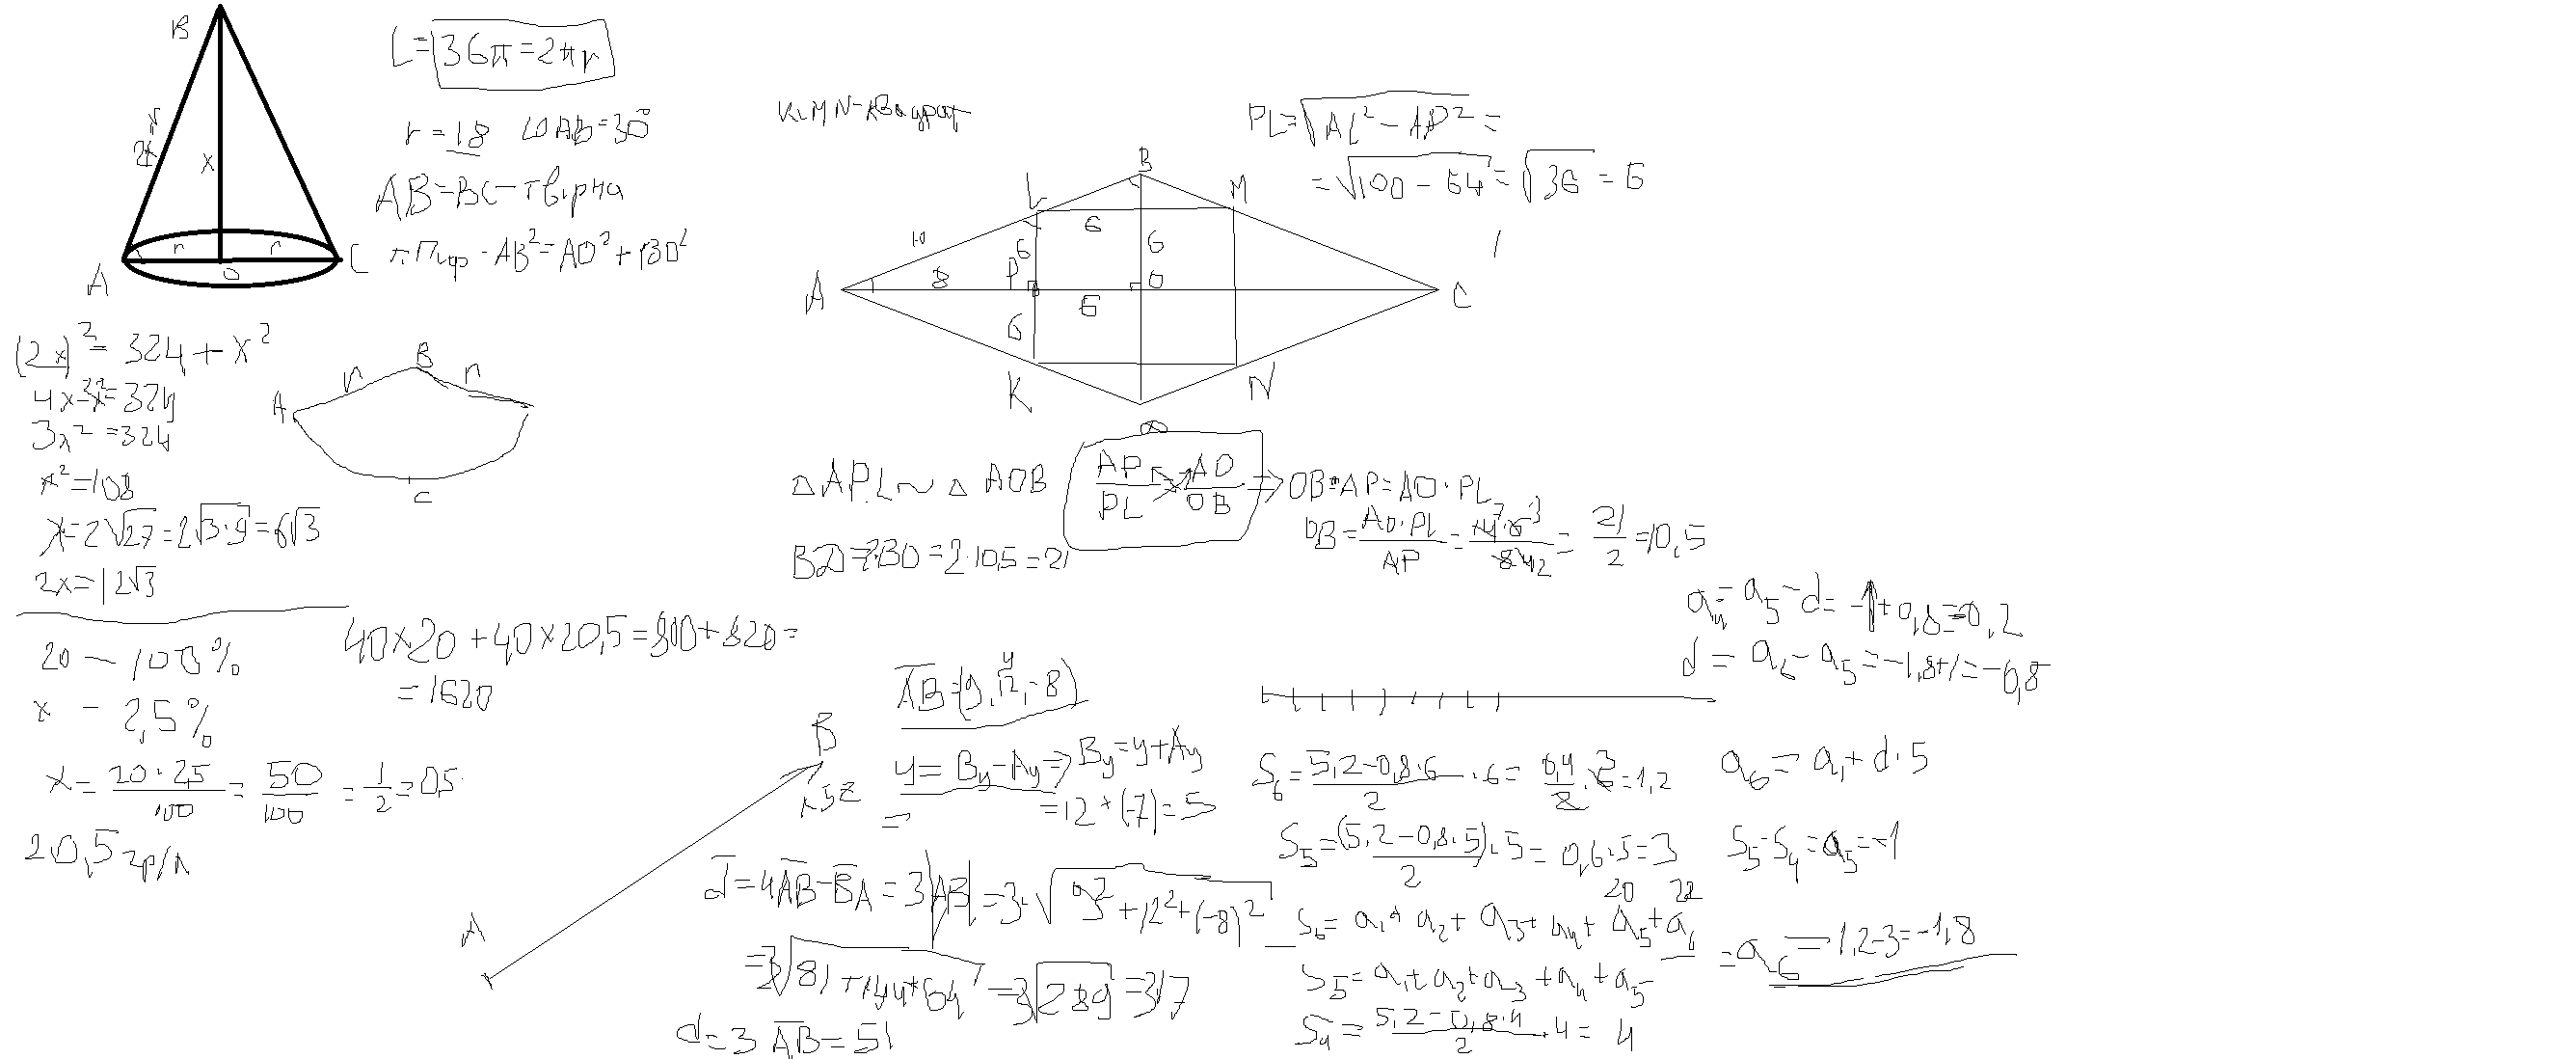 B
L=36π=2πr
r=18 ∠OAB=30°
AB=BC-твірна
т.Піф-AB²=AO²+BO²
2x
x
r r
A O C
(2x)²=324+x²
3x²=324
x²=108
x=2√27=2√3·9=6√3
2x=12√3
B
r r
A
C
20-100%
x - 2,5%
x=20·2,5/100=50/100=1/2=0,5
20,5 гр/л
40×20+40×20,5=800+820=
=1620
KLMN-квадрат
B
L M
6
10 6 6
A 8 P O C
6
6
K N
PL=√AL²-AP²=
=√100-64=√36=6
△APL~△AOB AP/PL=AO/OB => OB·AP=AO·PL
OB=AO·PL/AP=14·6/8=21/2=10,5
BD=2·BO=2·10,5=21
B
A
AB=(9,12,-8)
y
y=By-Ay=>By=y+Ay
=12+(-7)=5
d=4AB-BA=3|AB|=3·√9²+12²+(-8)²=
=3√81+144+64=3√289=3·17
d=3 AB=51
a₄=a₅-d=-1+0,8=-0,2
d=a₆-a₅=-1,8+1=-0,8
S₆=5,2-0,8·6/2·6=0,4/2·6=1,2
a₆=a₁+d·5
S₅=(5,2-0,8·5)/2·5=0,6·5=3
S₅-S₄=a₅=-1
S₆=a₁+a₂+a₃+a₄+a₅+a₆
=a₆=1,2-3=-1,8
S₅=a₁+a₂+a₃+a₄+a₅
S₄=5,2-0,8·4/2·4=4